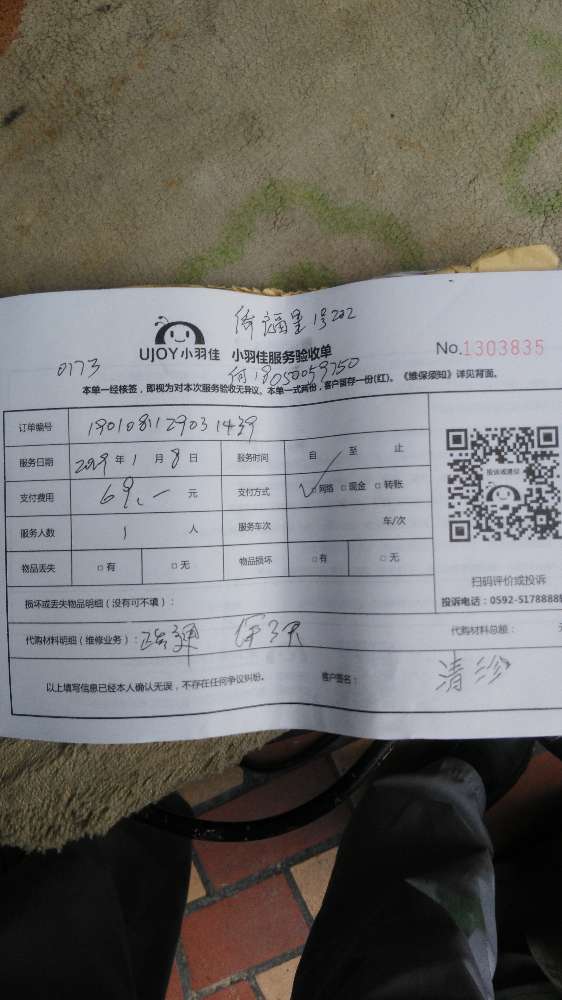 福星1号202
UJOY小羽佳 小羽佳服务验收单 No.1303835
0773 何18050059750
本单一经核签，即视为对本次服务验收无异议。本单一式两份，客户留存一份(红)。《维保须知》详见背面。
订单编号 1901081129031439
服务日期 2019年1月8日 服务时间 自 至 止
支付费用 69.- 元 支付方式 ✓□网络 □现金 □转账
服务人数 1 人 服务车次 车/次
物品丢失 □有 □无 物品损坏 □有 □无
投诉或建议
扫码评价或投诉
投诉电话：0592-5178888
损坏或丢失物品明细（没有可不填）：
代购材料明细（维修业务）： 代购材料总额：
以上填写信息已经本人确认无误，不存在任何争议纠纷。 客户签名： 清